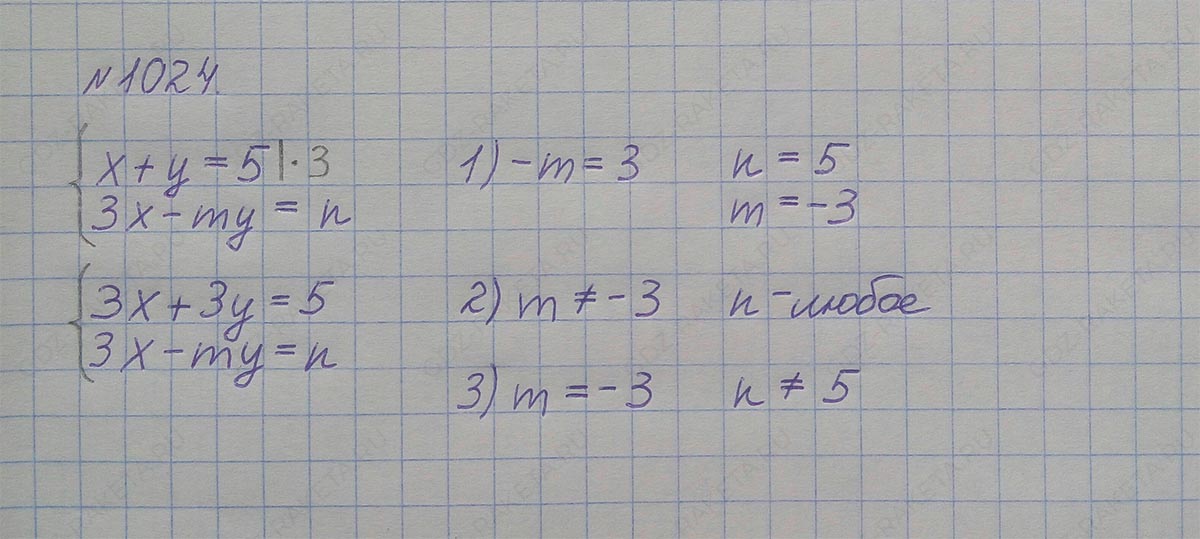 №1024.
x + y = 5 | · 3
3x - my = n
3x + 3y = 5
3x - my = n
1) - m = 3 n = 5
m = -3
2) m ≠ -3 n - любое
3) m = -3 n ≠ 5